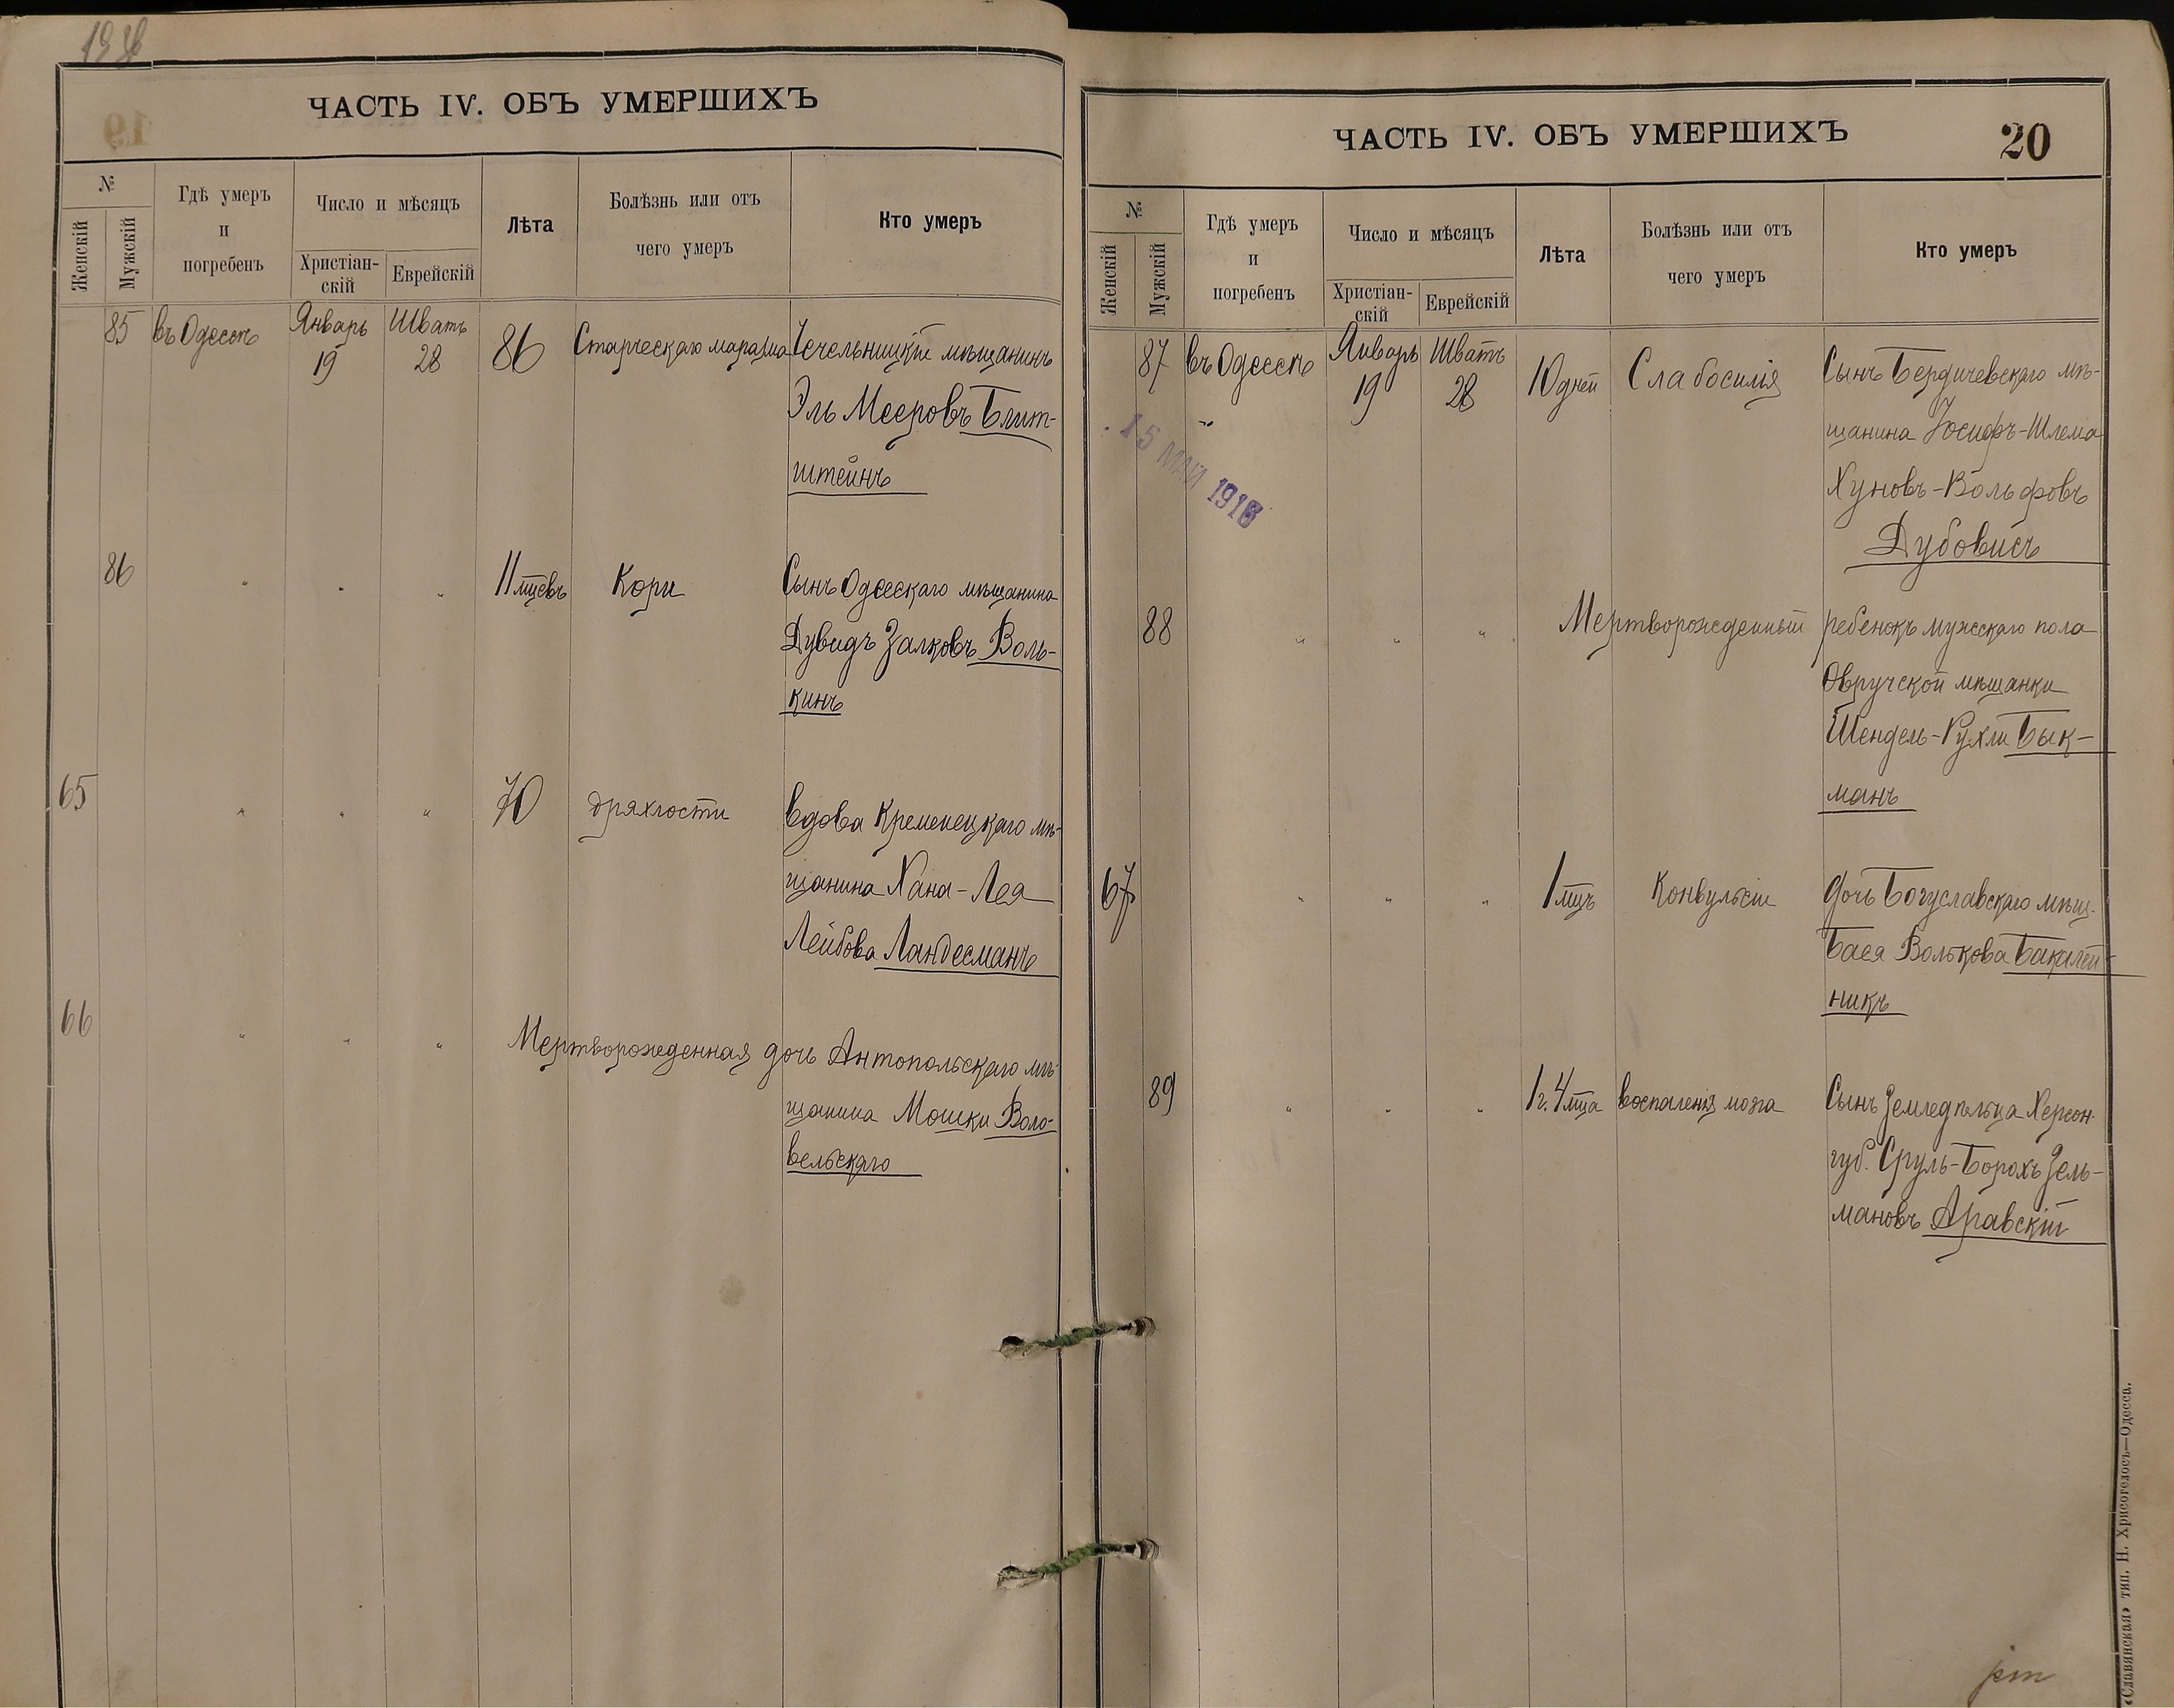 ЧАСТЬ IV. ОБЪ УМЕРШИХЪ
№
Женскій
Мужскій
Гдѣ умеръ
и
погребенъ
Число и мѣсяцъ
Христіан-
скій
Еврейскій
Лѣта
Болѣзнь или отъ
чего умеръ
Кто умеръ
85 въ Одессѣ Январь 19 Шватъ 28 86 Старческаго маразма Чечельницкій мѣщанинъ
Эль Мееровъ Блит-
штейнъ
86 " " " 11 мцевъ Кори Сынъ Одесскаго мѣщанина
Дувидъ Залковъ Воль-
кинъ
65 " " " 70 дряхлости вдова Кременецкаго мѣ-
щанина Хана-Лея
Лейбова Ландесманъ
66 " " " Мертворожденная дочь Антопольскаго мѣ-
щанина Мошки Воло-
вельскаго
ЧАСТЬ IV. ОБЪ УМЕРШИХЪ
20
№
Женскій
Мужскій
Гдѣ умеръ
и
погребенъ
Число и мѣсяцъ
Христіан-
скій
Еврейскій
Лѣта
Болѣзнь или отъ
чего умеръ
Кто умеръ
87 въ Одессѣ Январь 19 Шватъ 28 10 дней Слабосилія Сынъ Бердичевскаго мѣ-
щанина Іосифъ-Шлема
Хуновъ-Вольфовъ
Дубовисъ
15 МАЙ
88 " " " Мертворожденный ребенокъ мужескаго пола
Овручской мѣщанки
Шендель-Рухли Бык-
манъ
67 " " " 1 мцъ Конвульсіи дочь Богуславскаго мѣщ.
Бася Волькова Бакалей-
никъ
89 " " " 1 г. 4 мца воспаленія мозга Сынъ Земледѣльца Херсон.
губ. Сруль-Борохъ Зель-
мановъ Аравскій
«Славянская» тип. Н. Хрисогелосъ—Одесса.